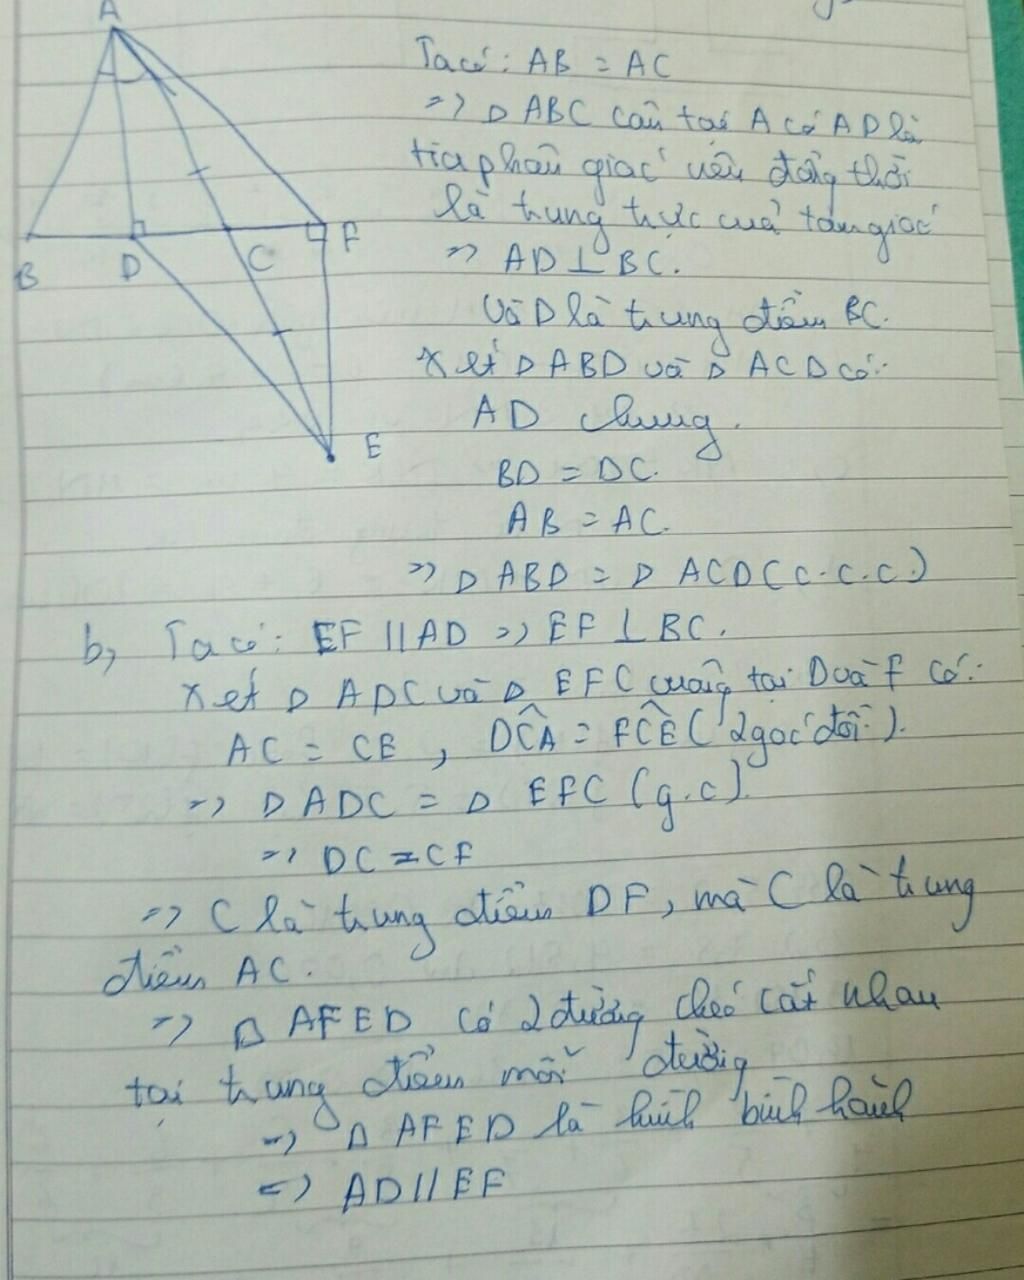 A
B
D
C
F
E
Ta có: AB = AC
=> Δ ABC cân tại A có AD là
tia phân giác nên đồng thời
là trung trực của tam giác
=> AD ⊥ BC.
Và D là trung điểm BC.
Xét Δ ABD và Δ ACD có:
AD chung.
BD = DC.
AB = AC.
=> Δ ABD = Δ ACD (c.c.c)
b, Ta có: EF // AD => EF ⊥ BC.
Xét Δ ADC và Δ EFC vuông tại D và F có:
AC = CE, DĈA = FĈE (2 góc đối).
=> Δ ADC = Δ EFC (g.c).
=> DC = CF
=> C là trung điểm DF, mà C là trung
điểm AC.
=> Δ AFED có 2 đường chéo cắt nhau
tại trung điểm mỗi đường
=> Δ AFED là hình bình hành
=> AD // EF